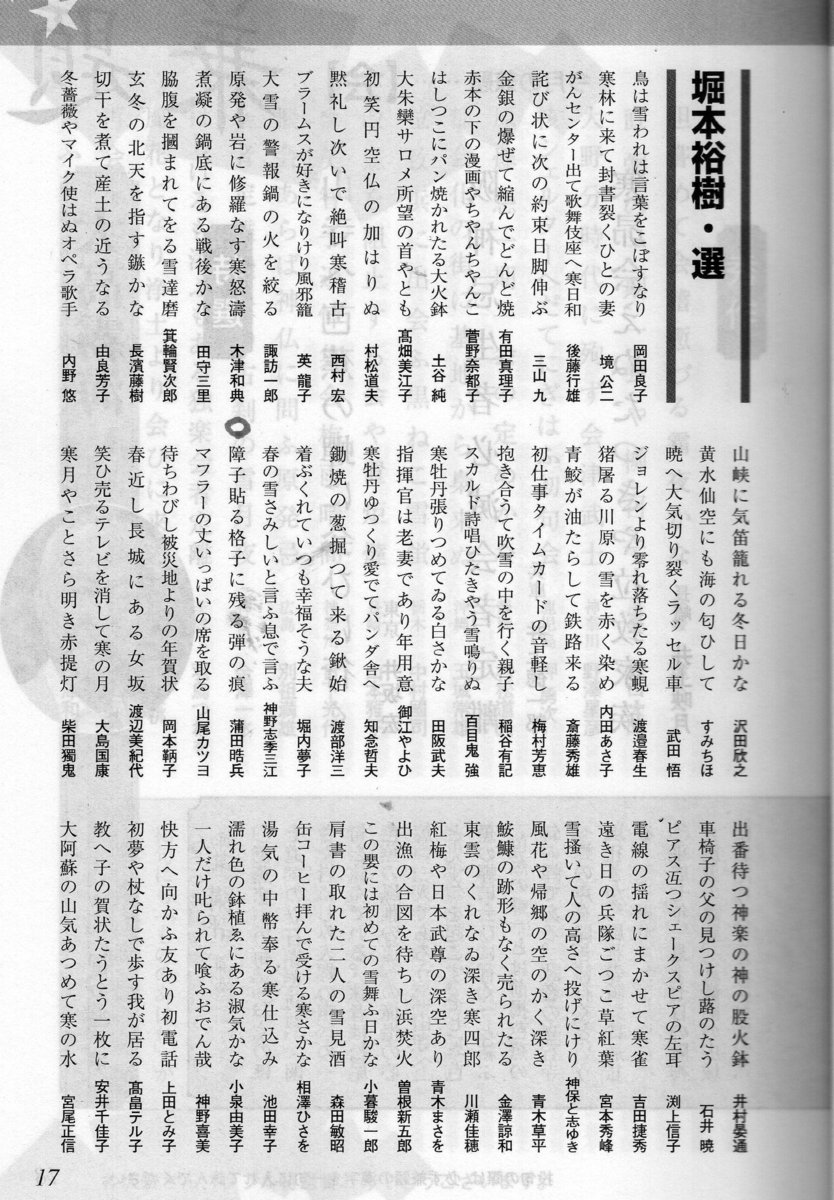 堀本裕樹・選
鳥は雪われは言葉をこぼすなり 岡田良子
寒林に来て封書裂くひとの妻 境公二
がんセンター出て歌舞伎座へ寒日和 後藤行雄
詫び状に次の約束日脚伸ぶ 三山九
金銀の爆ぜて縮んでどんど焼 有田真理子
赤本の下の漫画やちゃんちゃんこ 菅野奈都子
はしつこにパン焼かれたる大火鉢 土谷純
大朱欒サロメ所望の首やとも 髙畑美江子
初笑円空仏の加はりぬ 村松道夫
黙礼し次いで絶叫寒稽古 西村宏
ブラームスが好きになりけり風邪籠 英龍子
大雪の警報鍋の火を絞る 諏訪一郎
原発や岩に修羅なす寒怒濤 木津和典
煮凝の鍋底にある戦後かな 田守三里
脇腹を摑まれてをる雪達磨 箕輪賢次郎
玄冬の北天を指す鏃かな 長濱藤樹
切干を煮て産土の近うなる 由良芳子
冬薔薇やマイク使はぬオペラ歌手 内野悠
山峡に気笛籠れる冬日かな 沢田欣之
黄水仙空にも海の匂ひして すみちほ
暁へ大気切り裂くラッセル車 武田悟
ジョレンより零れ落ちたる寒蜆 渡邉春生
猪屠る川原の雪を赤く染め 内田あさ子
青鮫が油たらして鉄路来る 斎藤秀雄
初仕事タイムカードの音軽し 梅村芳恵
抱き合うて吹雪の中を行く親子 稲谷有記
スカルド詩唱ひたきやう雪鳴りぬ 百目鬼強
寒牡丹張りつめてゐる白さかな 田阪武夫
指揮官は老妻であり年用意 御江やよひ
寒牡丹ゆつくり愛でてパンダ舎へ 知念哲夫
鋤焼の葱掘つて来る鍬始 渡部洋三
着ぶくれていつも幸福そうな夫 堀内夢子
春の雪さみしいと言ふ息で言ふ 神野志季三江
障子貼る格子に残る弾の痕 蒲田晧兵
マフラーの丈いっぱいの席を取る 山尾カツヨ
待ちわびし被災地よりの年賀状 岡本鞆子
春近し長城にある女坂 渡辺美紀代
笑ひ売るテレビを消して寒の月 大島国康
寒月やことさら明き赤提灯 柴田獨鬼
出番待つ神楽の神の股火鉢 井村晏通
車椅子の父の見つけし蕗のたう 石井暁
ピアス冱つシェークスピアの左耳 渕上信子
電線の揺れにまかせて寒雀 吉田捷秀
遠き日の兵隊ごつこ草紅葉 宮本秀峰
雪搔いて人の高さへ投げにけり 神保と志ゆき
風花や帰郷の空のかく深き 青木草平
鮟鱇の跡形もなく売られたる 金澤諒和
東雲のくれなゐ深き寒四郎 川瀬佳穂
紅梅や日本武尊の深空あり 青木まさを
出漁の合図を待ちし浜焚火 曽根新五郎
この嬰には初めての雪舞ふ日かな 小暮駿一郎
肩書の取れた二人の雪見酒 森田敏昭
缶コーヒー拝んで受ける寒さかな 相澤ひさを
湯気の中幣奉る寒仕込み 池田幸子
濡れ色の鉢植ゑにある淑気かな 小泉由美子
一人だけ叱られて喰ふおでん哉 神野喜美
快方へ向かふ友あり初電話 上田とみ子
初夢や杖なしで歩す我が居る 髙畠テル子
教へ子の賀状たうとう一枚に 安井千佳子
大阿蘇の山気あつめて寒の水 宮尾正信
17